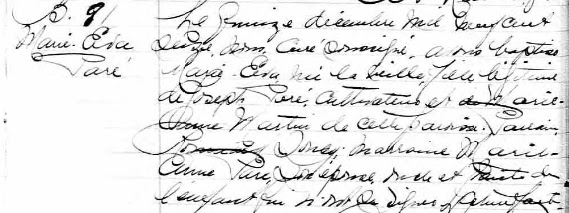 B. 9
Marie-Eva
Paré
Le quinze décembre mil neuf cent
seize, nous, Curé soussigné, avons baptisé
Marie-Eva, née la veille, fille légitime
de Joseph Paré, Cultivateur et de Marie-
Anne Martin de cette paroisse. Parrain,
marraine Marie-
Anne Paré, son épouse, oncle et tante de
l'enfant qui n'ont su signer. Lecture faite